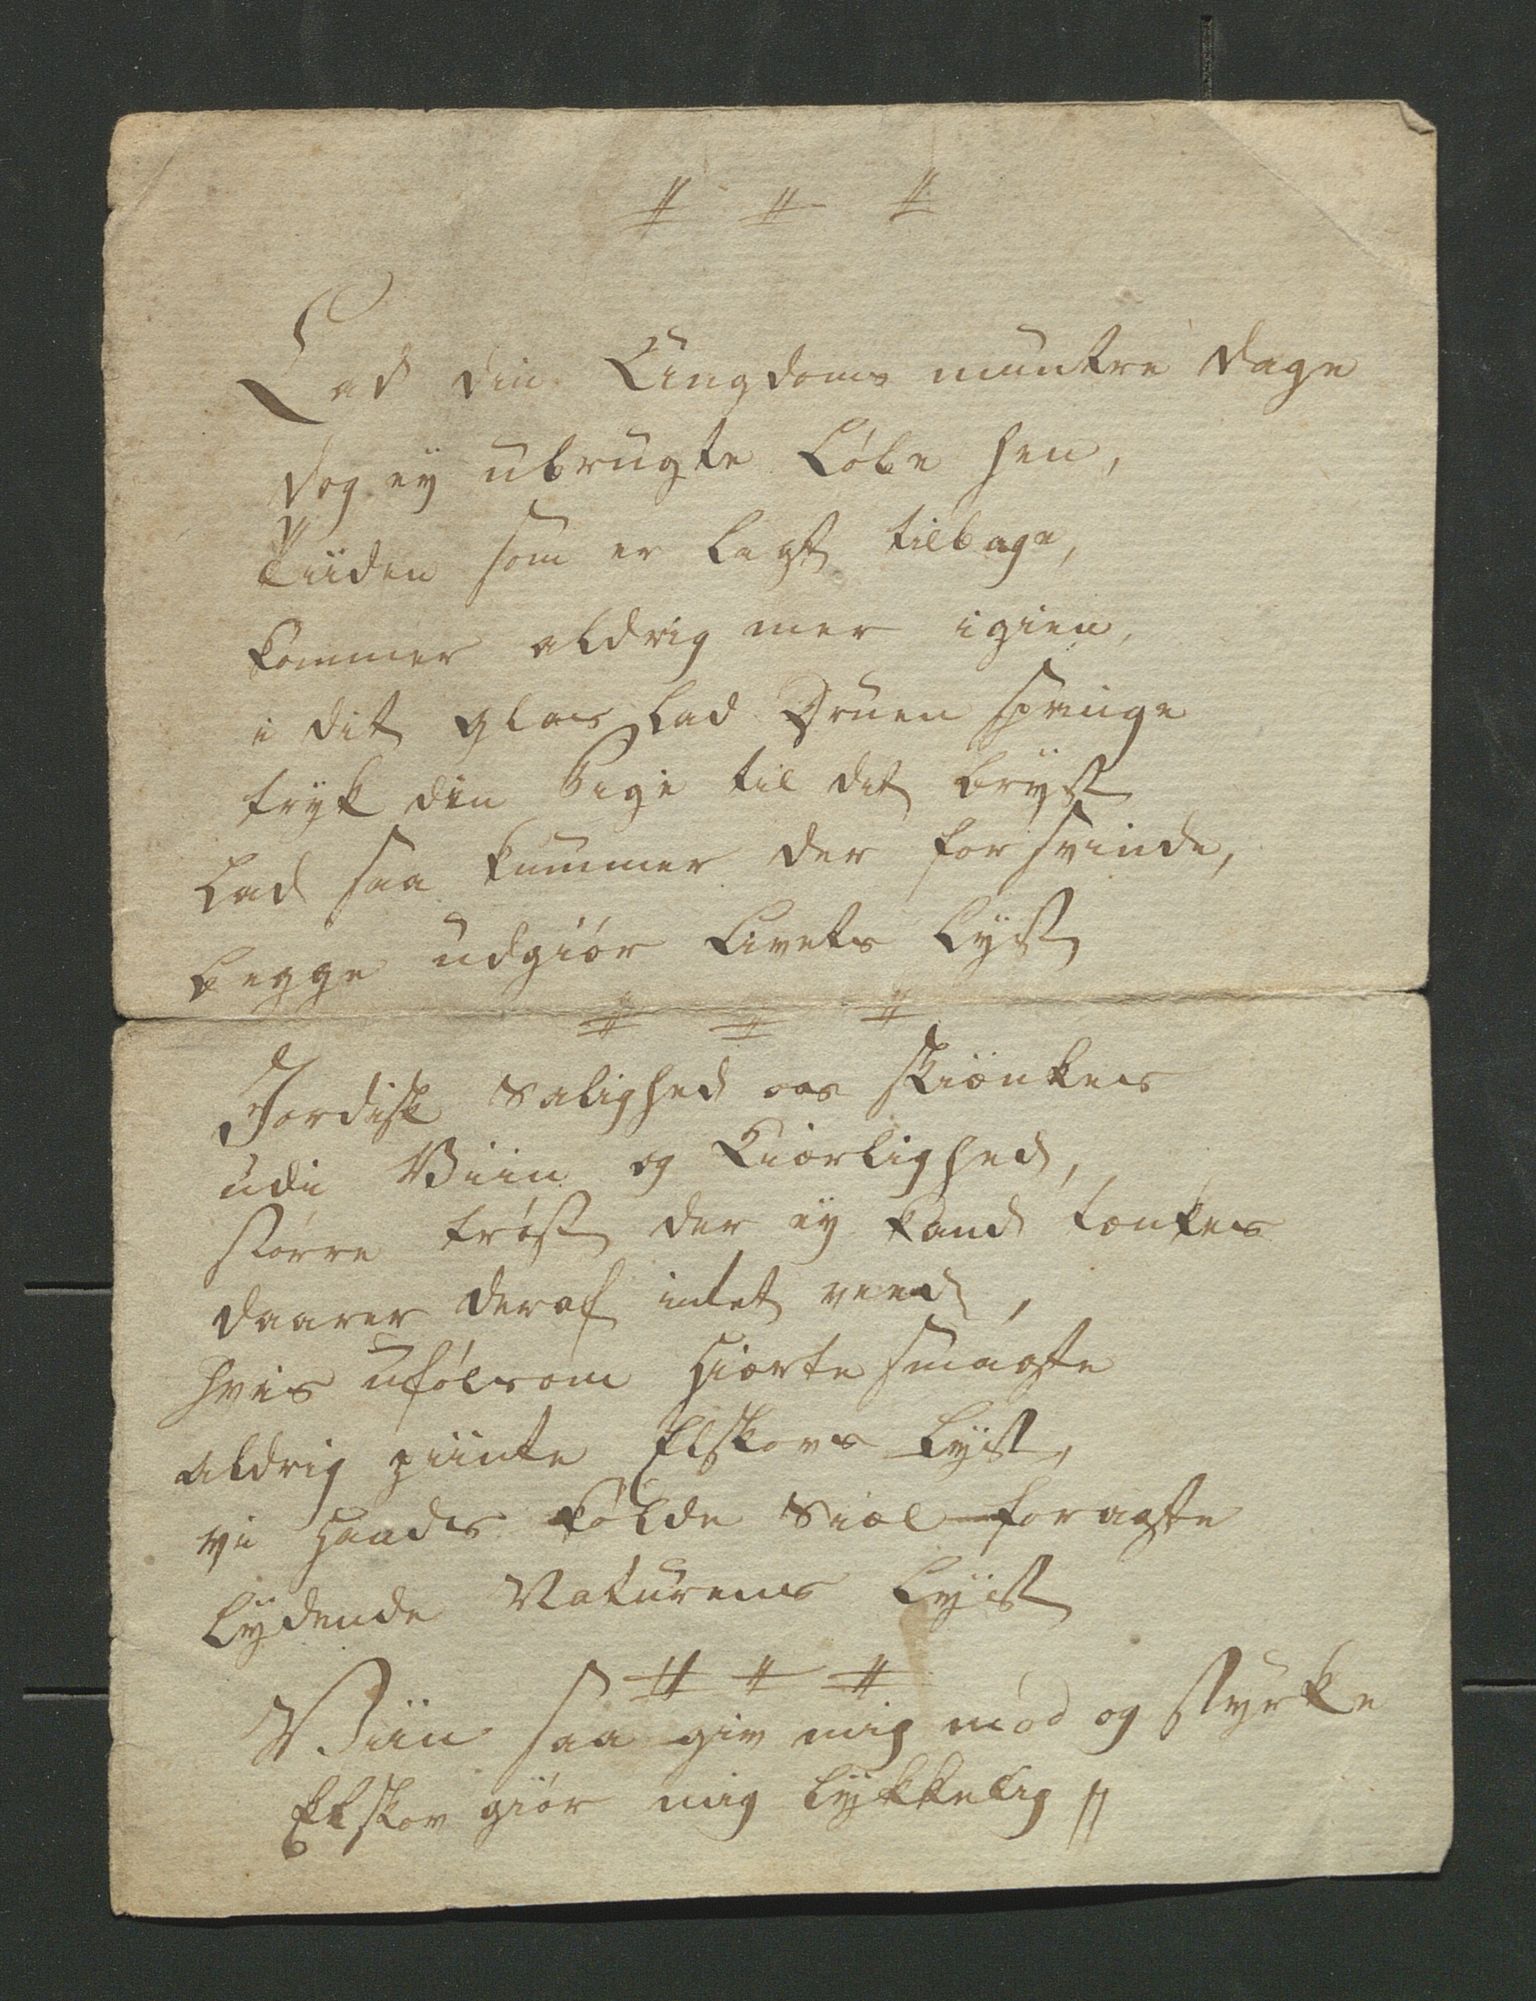 # # #
Lad din Ungdoms muntre dage
dog ey ubrugte Løbe hen,
Tiiden som er lagt tilbage,
kommer aldrig mer igien,
i dit glas Lad Druen springe
tryk din Pige til dit bryst
Lad saa kummer der for svinde,
begge udgiør Livets Lyst
# # #
Jordisk Salighed os skiænkes
udi Viin og Kiærlighed,
større trøst der ey kand tænkes
daarer deraf intet veed,
hvis ufølsom Hierte smagte
aldrig piinte Elskovs Lyst,
vi Haads kolde Siæl foragte
Lydende Naturens Lyst
# # #
Viin saa giv mig mod og styrke
Elskov giør mig lykkelig //